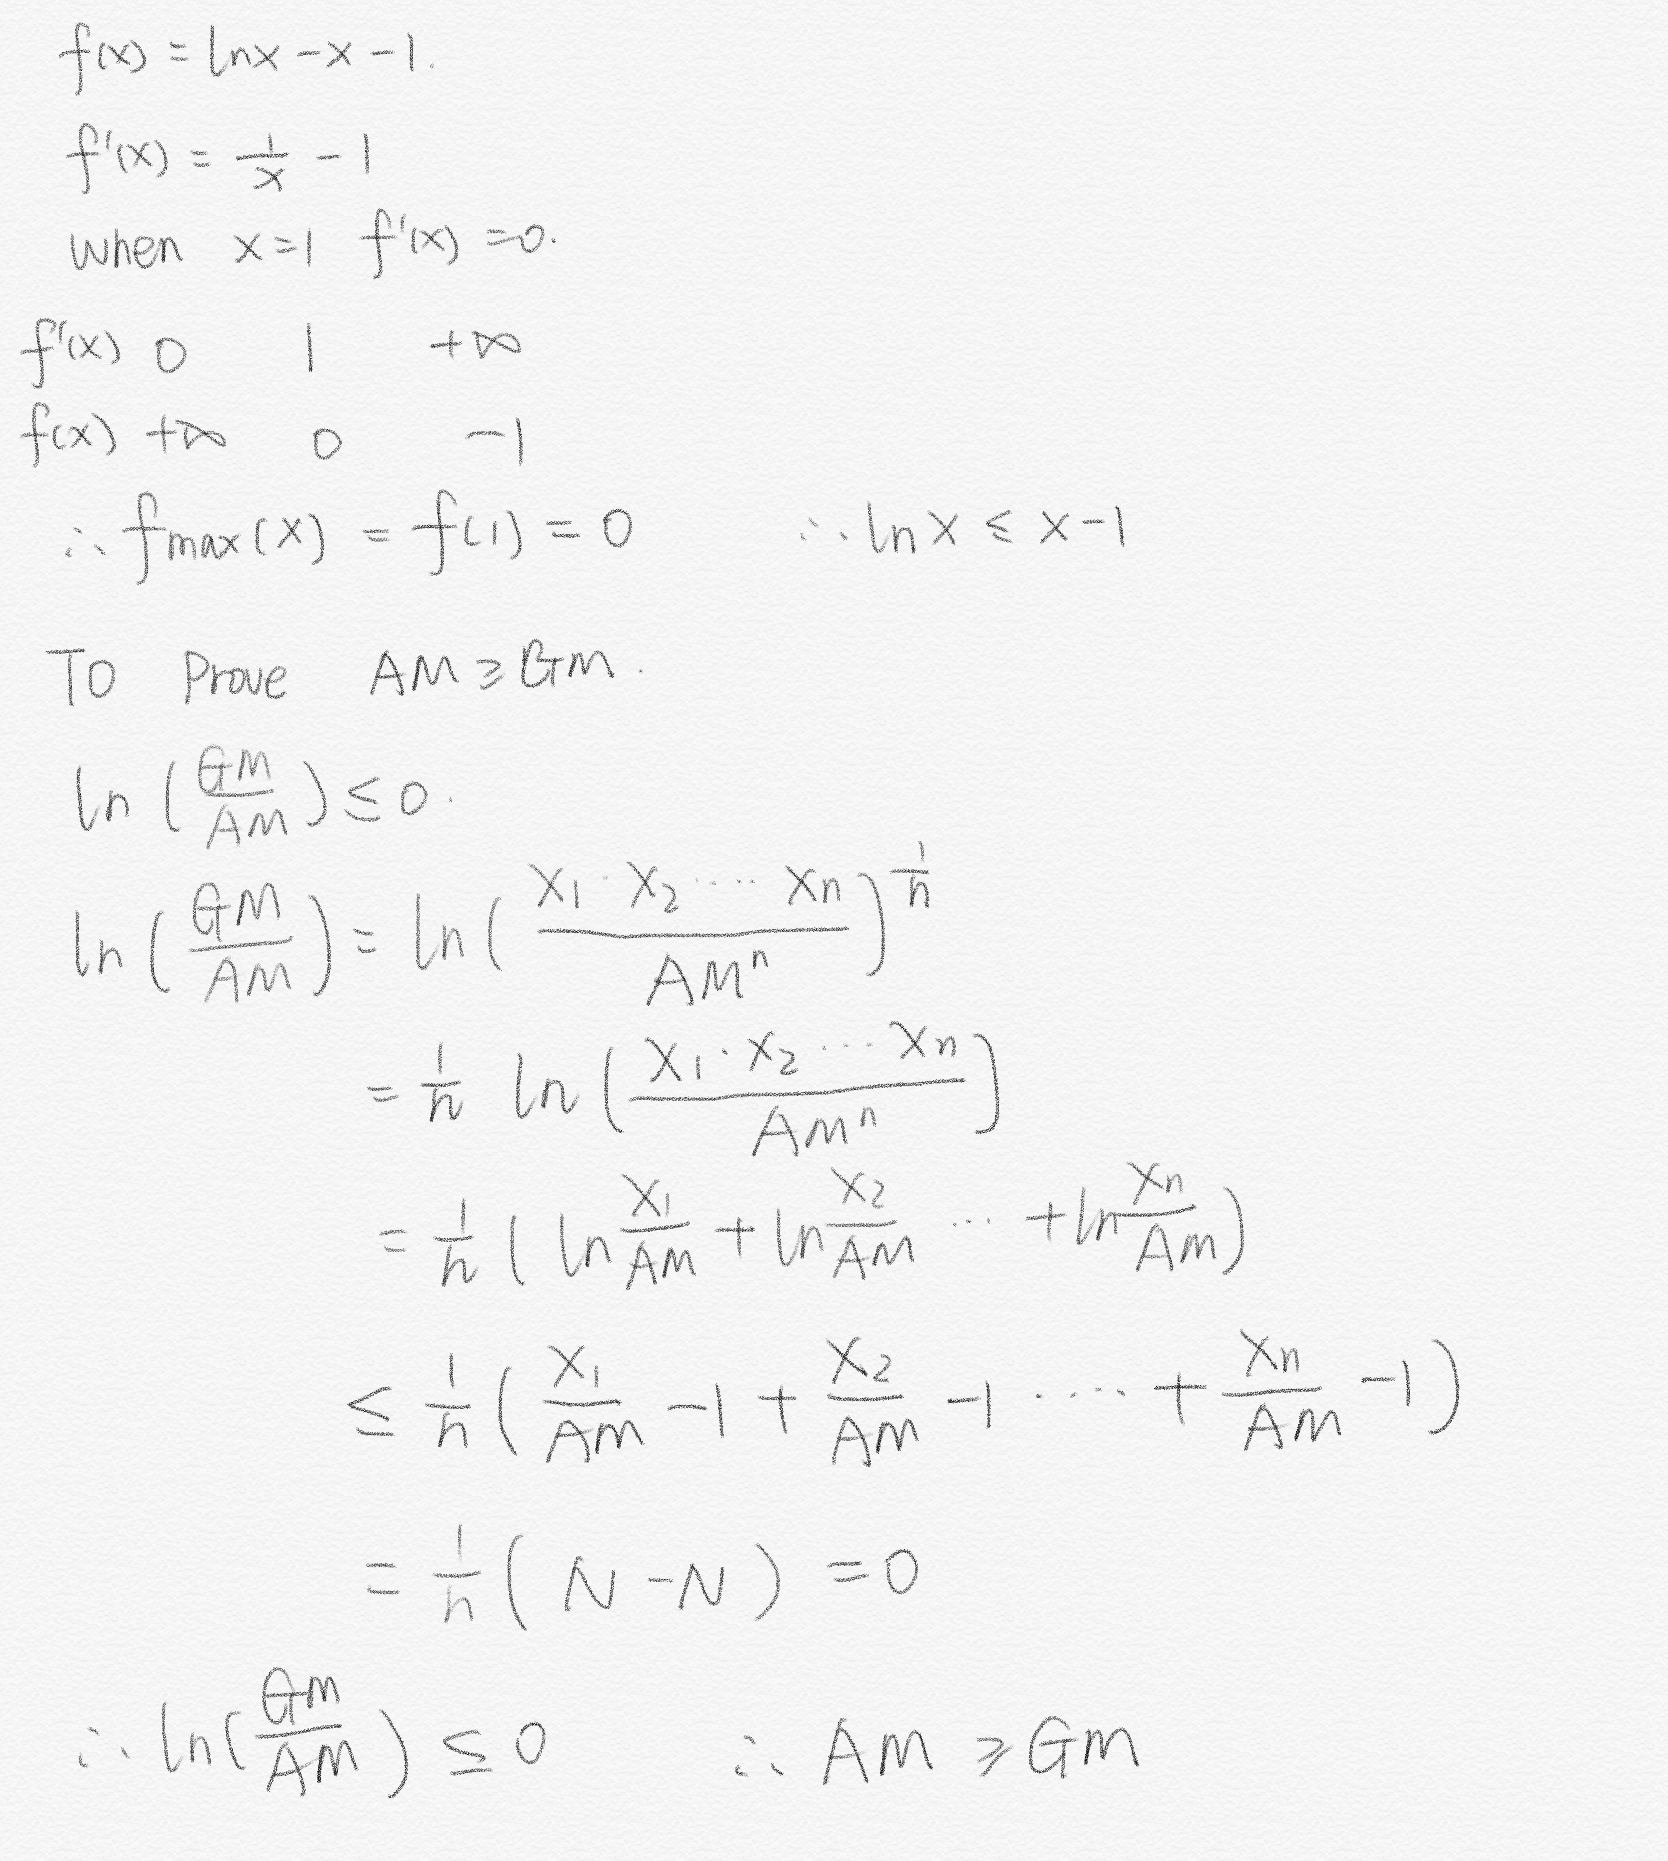 f(x) = lnx - x - 1.
f'(x) = 1/x - 1
when x=1 f'(x) =0.
f'(x) 0 1 +∞
f(x) +∞ 0 -1
∴ fmax(x) = f(1) = 0 ∴ ln x ≤ x-1
To Prove AM ≥ GM.
ln (GM/AM) ≤ 0.
ln (GM/AM) = ln (x₁·x₂····xₙ/AMⁿ)^(1/n)
= 1/n ln (x₁·x₂····xₙ/AMⁿ)
= 1/n ( ln x₁/AM + ln x₂/AM ··· + ln xₙ/AM )
≤ 1/n ( x₁/AM - 1 + x₂/AM - 1 ····· + xₙ/AM - 1 )
= 1/n ( N - N ) = 0
∴ ln (GM/AM) ≤ 0 ∴ AM ≥ GM